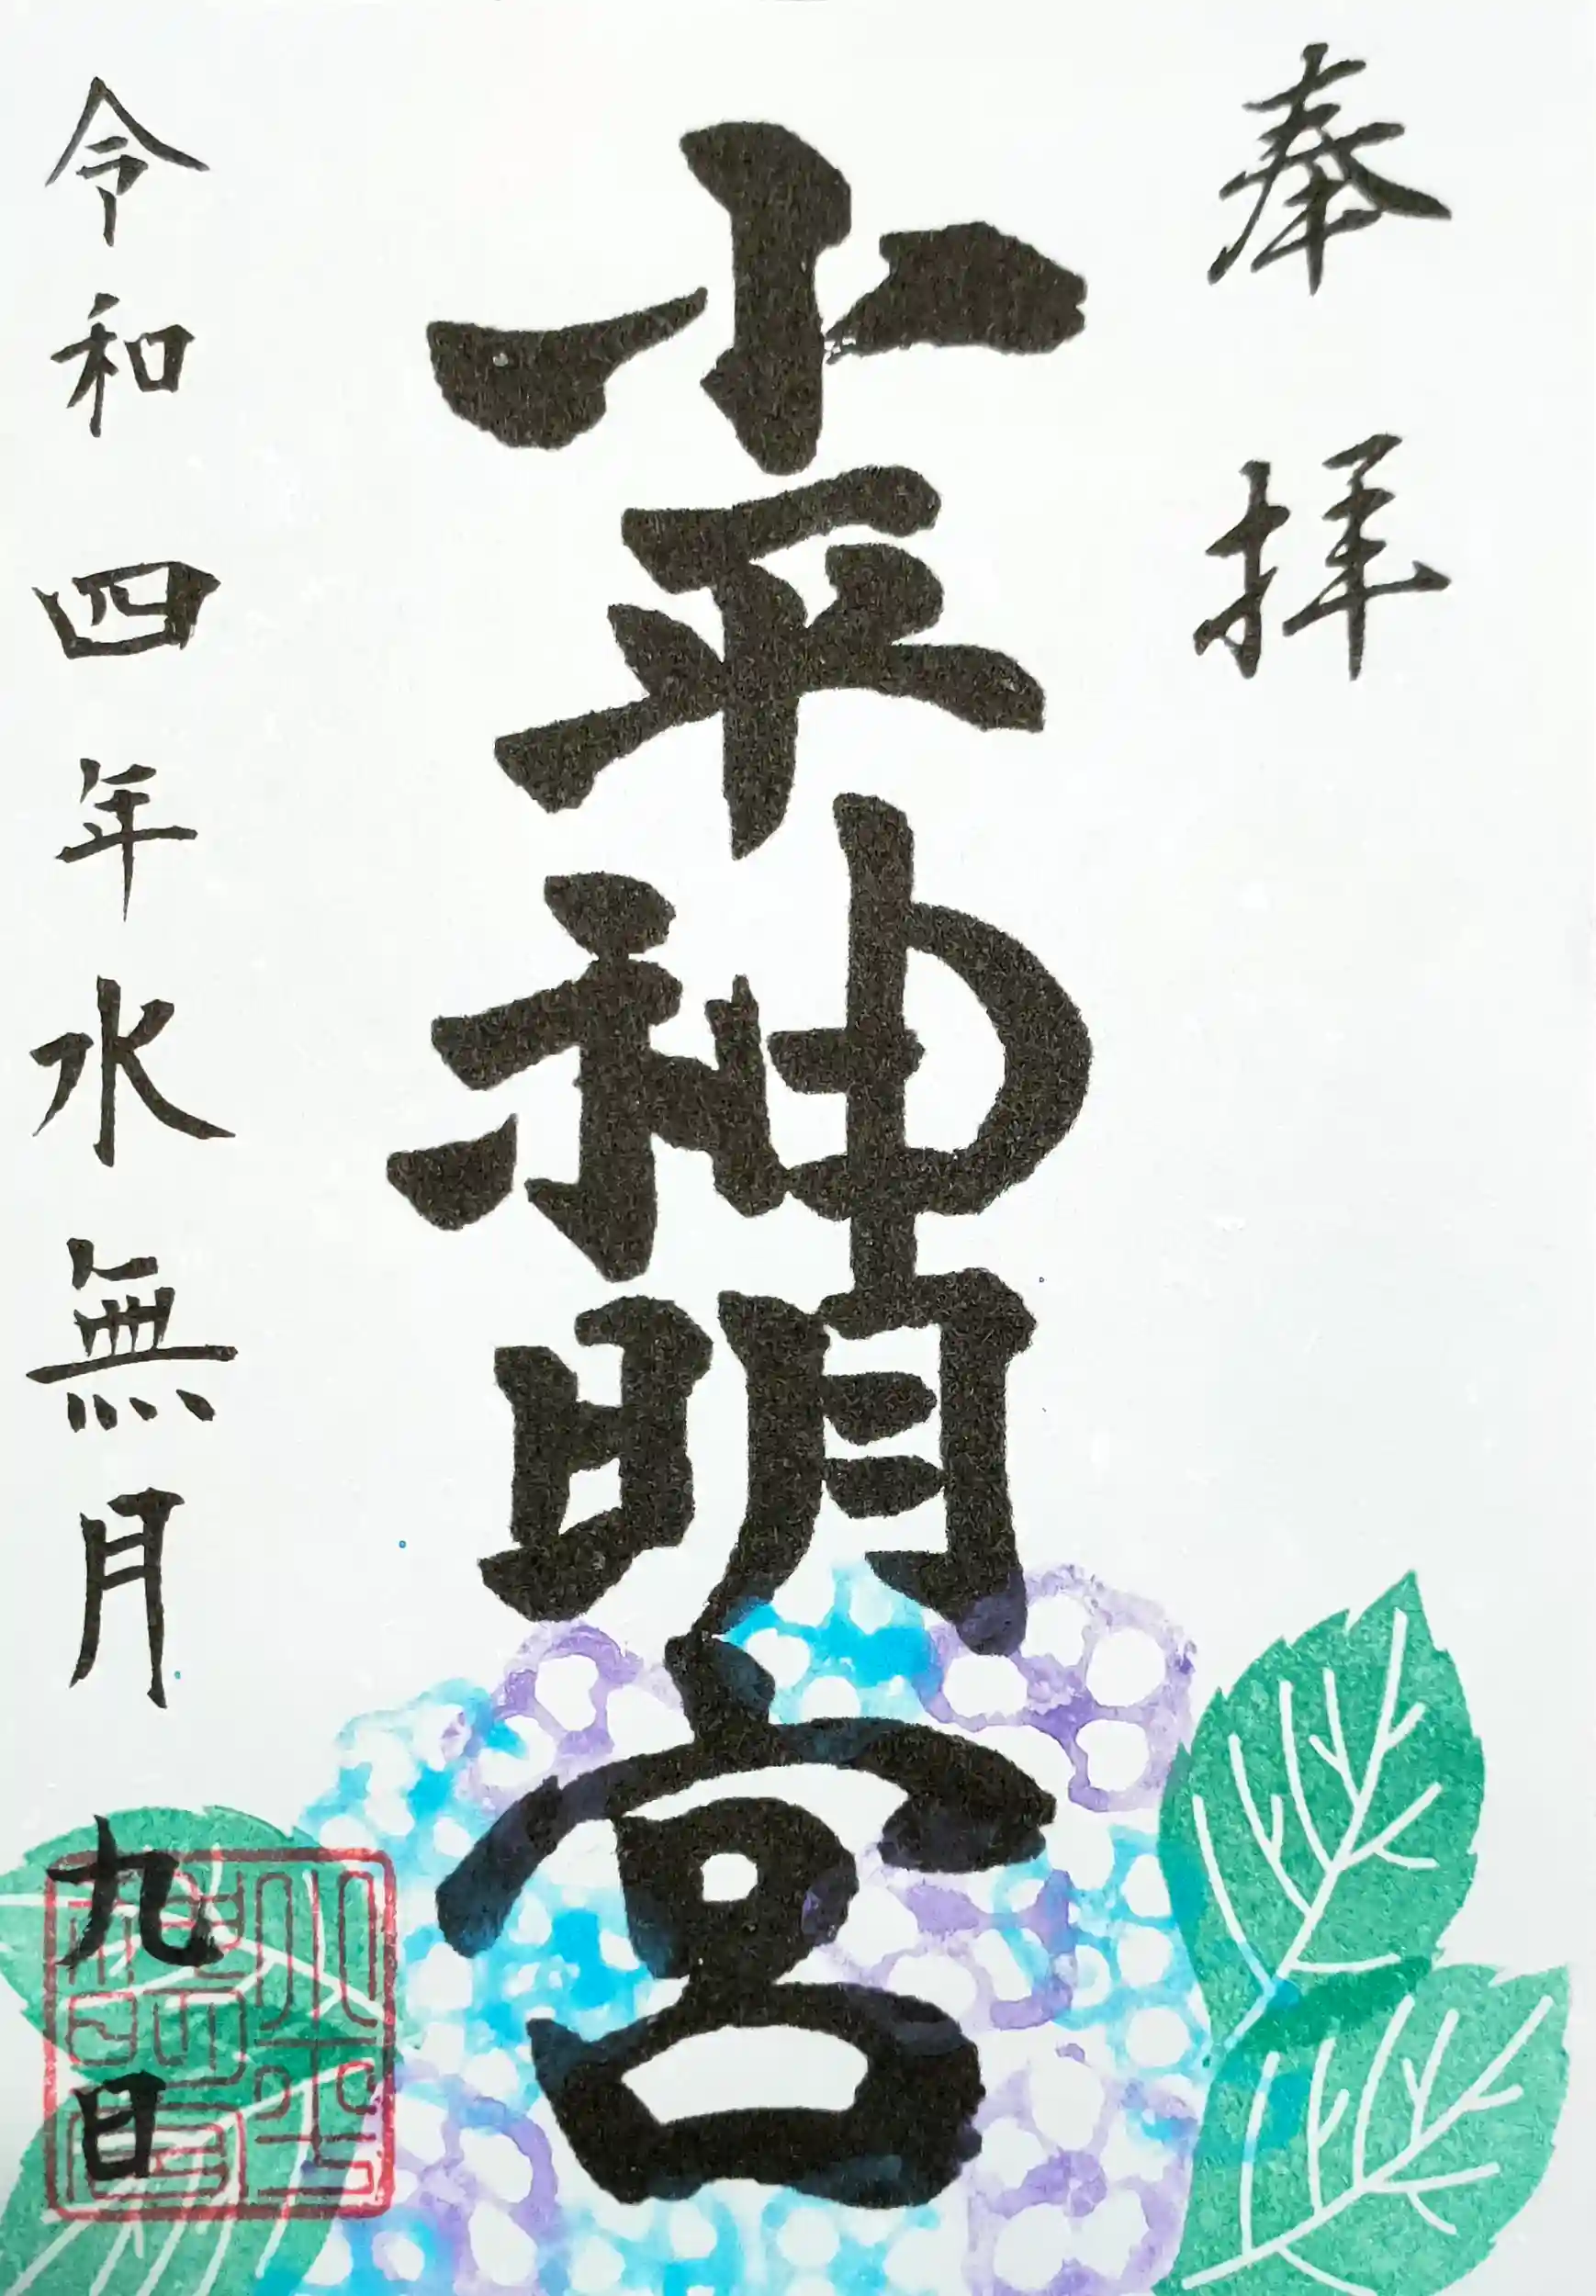 奉拝
小平神明宮
令和四年水無月九日
小平神明宮